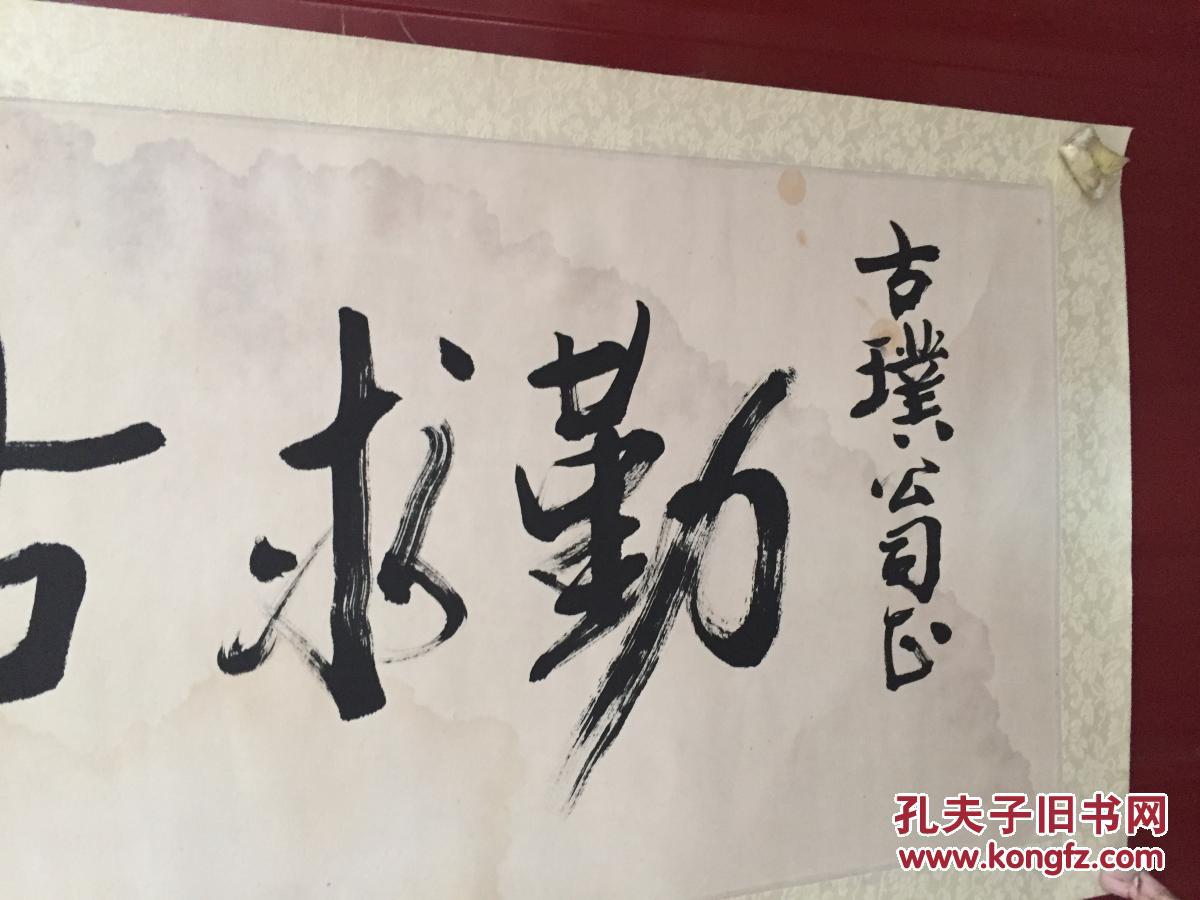 古璞公司正
勤求古
孔夫子旧书网
www.kongfz.com